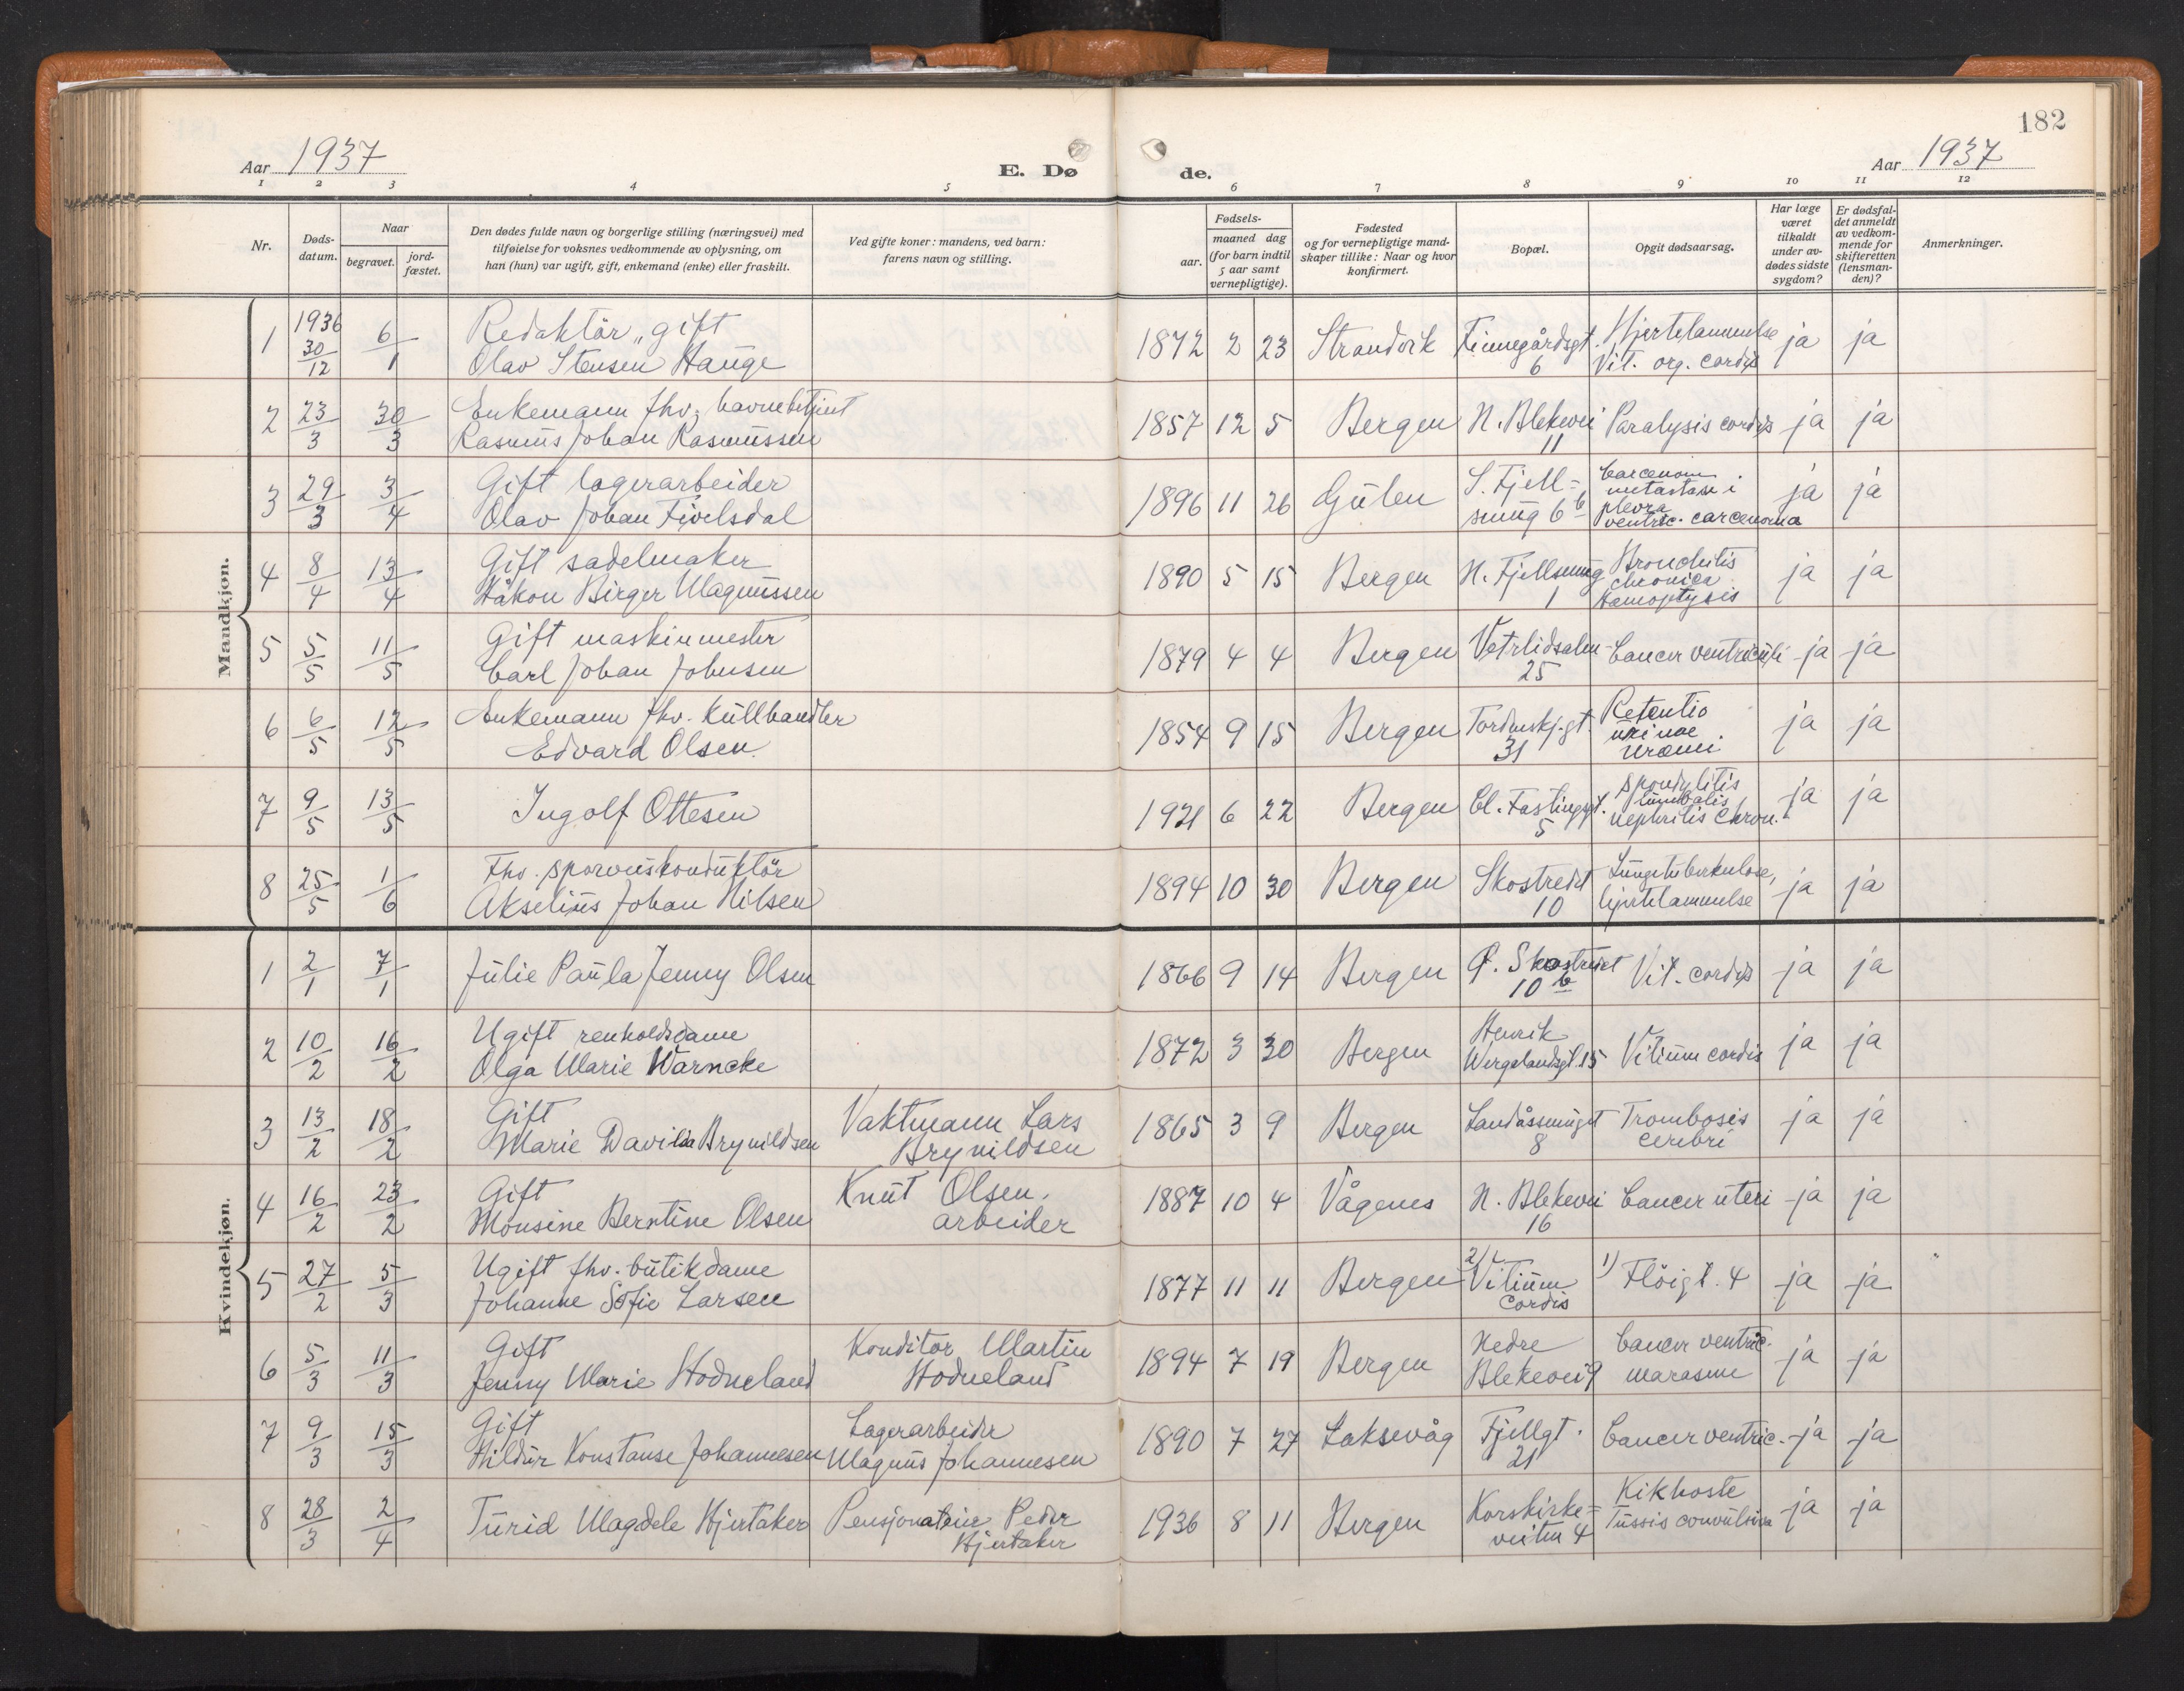 182
Aar 1937
E. Døde.
Aar 1937
1 2 3 4 5 6 7 8 9 10 11 12
Nr.
Døds-datum.
Naar
begravet.
jord-fæstet.
Den dødes fulde navn og borgerlige stilling (næringsvei) med
tilføielse for voksnes vedkommende av oplysning, om
han (hun) var ugift, gift, enkemand (enke) eller fraskilt.
Ved gifte koner: mandens, ved barn:
farens navn og stilling.
Fødsels-
aar.
maaned dag
(for barn indtil
5 aar samt
vernepligtige).
Fødested
og for vernepligtige mand-
skaper tillike: Naar og hvor
konfirmert.
Bopæl.
Opgit dødsaarsag.
Har læge
været
tilkaldt
under av-
dødes sidste
sygdom?
Er dødsfal-
det anmeldt
av vedkom-
mende for
skifteretten
(lensman-
den)?
Anmerkninger.
Mandkjøn.
1 1936 30/12 6/1 Redaktör, gift
Olav Stensen Hauge 1872 2 23 Strandvik Finnegårdsgt. 6 Hjertelammelse
Vit. org. cordis ja ja
2 23/3 30/3 Enkemann fhv. havnebetjent
Rasmus Johan Rasmussen 1857 12 5 Bergen N. Blekevei 11 Paralysis cordis ja ja
3 29/3 3/4 Gift lagerarbeider
Olav Johan Fivelsdal 1896 11 26 Gulen S. Fjell=
smug 6 b Carcenom
metastase i
plevra
ventric. carcenoma ja ja
4 8/4 13/4 Gift sadelmaker
Håkon Birger Magnussen 1890 5 15 Bergen N. Fjellsmug 1 Bronchitis
chronica
Hamoptysis ja ja
5 5/5 11/5 Gift maskinmester
Carl Johan Johnsen 1879 4 4 Bergen Vetrlidsalm 25 Cancer ventriculi ja ja
6 6/5 12/5 Enkemann fhv. kullhandler
Edvard Olsen 1854 9 15 Bergen Tordenskj.gt. 31 Retentio
urinae
uræmi ja ja
7 9/5 13/5 Ingolf Ottesen 1921 6 22 Bergen Cl. Fastingsgt. 5 Spondylitis
lumbalis
nephritis chron. ja ja
8 25/5 1/6 Fhv. sporveiskonduktör
Akselius Johan Nilsen 1894 10 30 Bergen Skostredet 10 Lungetuberkulose,
hjertelammelse ja ja
Kvindekjøn.
1 2/1 7/1 Julie Paula Jenny Olsen 1866 9 14 Bergen Ø. Skostredet 10 b Vit. cordis ja ja
2 10/2 16/2 Ugift renholdsdame
Olga Marie Warncke 1872 3 30 Bergen Henrik
Wergelandsgt. 15 Vitium cordis ja ja
3 13/2 18/2 Gift
Marie Davilia Brynildsen Vaktmann Lars
Brynildsen 1865 3 9 Bergen Landåssmuget 8 Trombosis
cerebri ja ja
4 16/2 23/2 Gift
Monsine Berntine Olsen Knut Olsen.
arbeider 1887 10 4 Vågenes N. Blekevei 16 Cancer uteri ja ja
5 27/2 5/3 Ugift fhv. butikdame
Johanne Sofie Larsen 1877 11 11 Bergen 2) Vitium
Cordis 1) Flöigt. 4 ja ja
6 5/3 11/3 Gift
Jenny Marie Hodneland Konditor Martin
Hodneland 1894 7 19 Bergen Nedre
Blekevei 9 Cancer ventric.
marasme ja ja
7 9/3 15/3 Gift
Hildur Konstanse Johannesen Lagerarbeider
Magnus Johannesen 1890 7 27 Laksevåg Fjellgt. 21 Cancer ventric. ja ja
8 28/3 2/4 Turid Magdele Hjertaker Peder
Hjertaker 1936 8 11 Bergen Korskirke=
veiten 4 Kikhoste
Tussis convulsiva ja ja